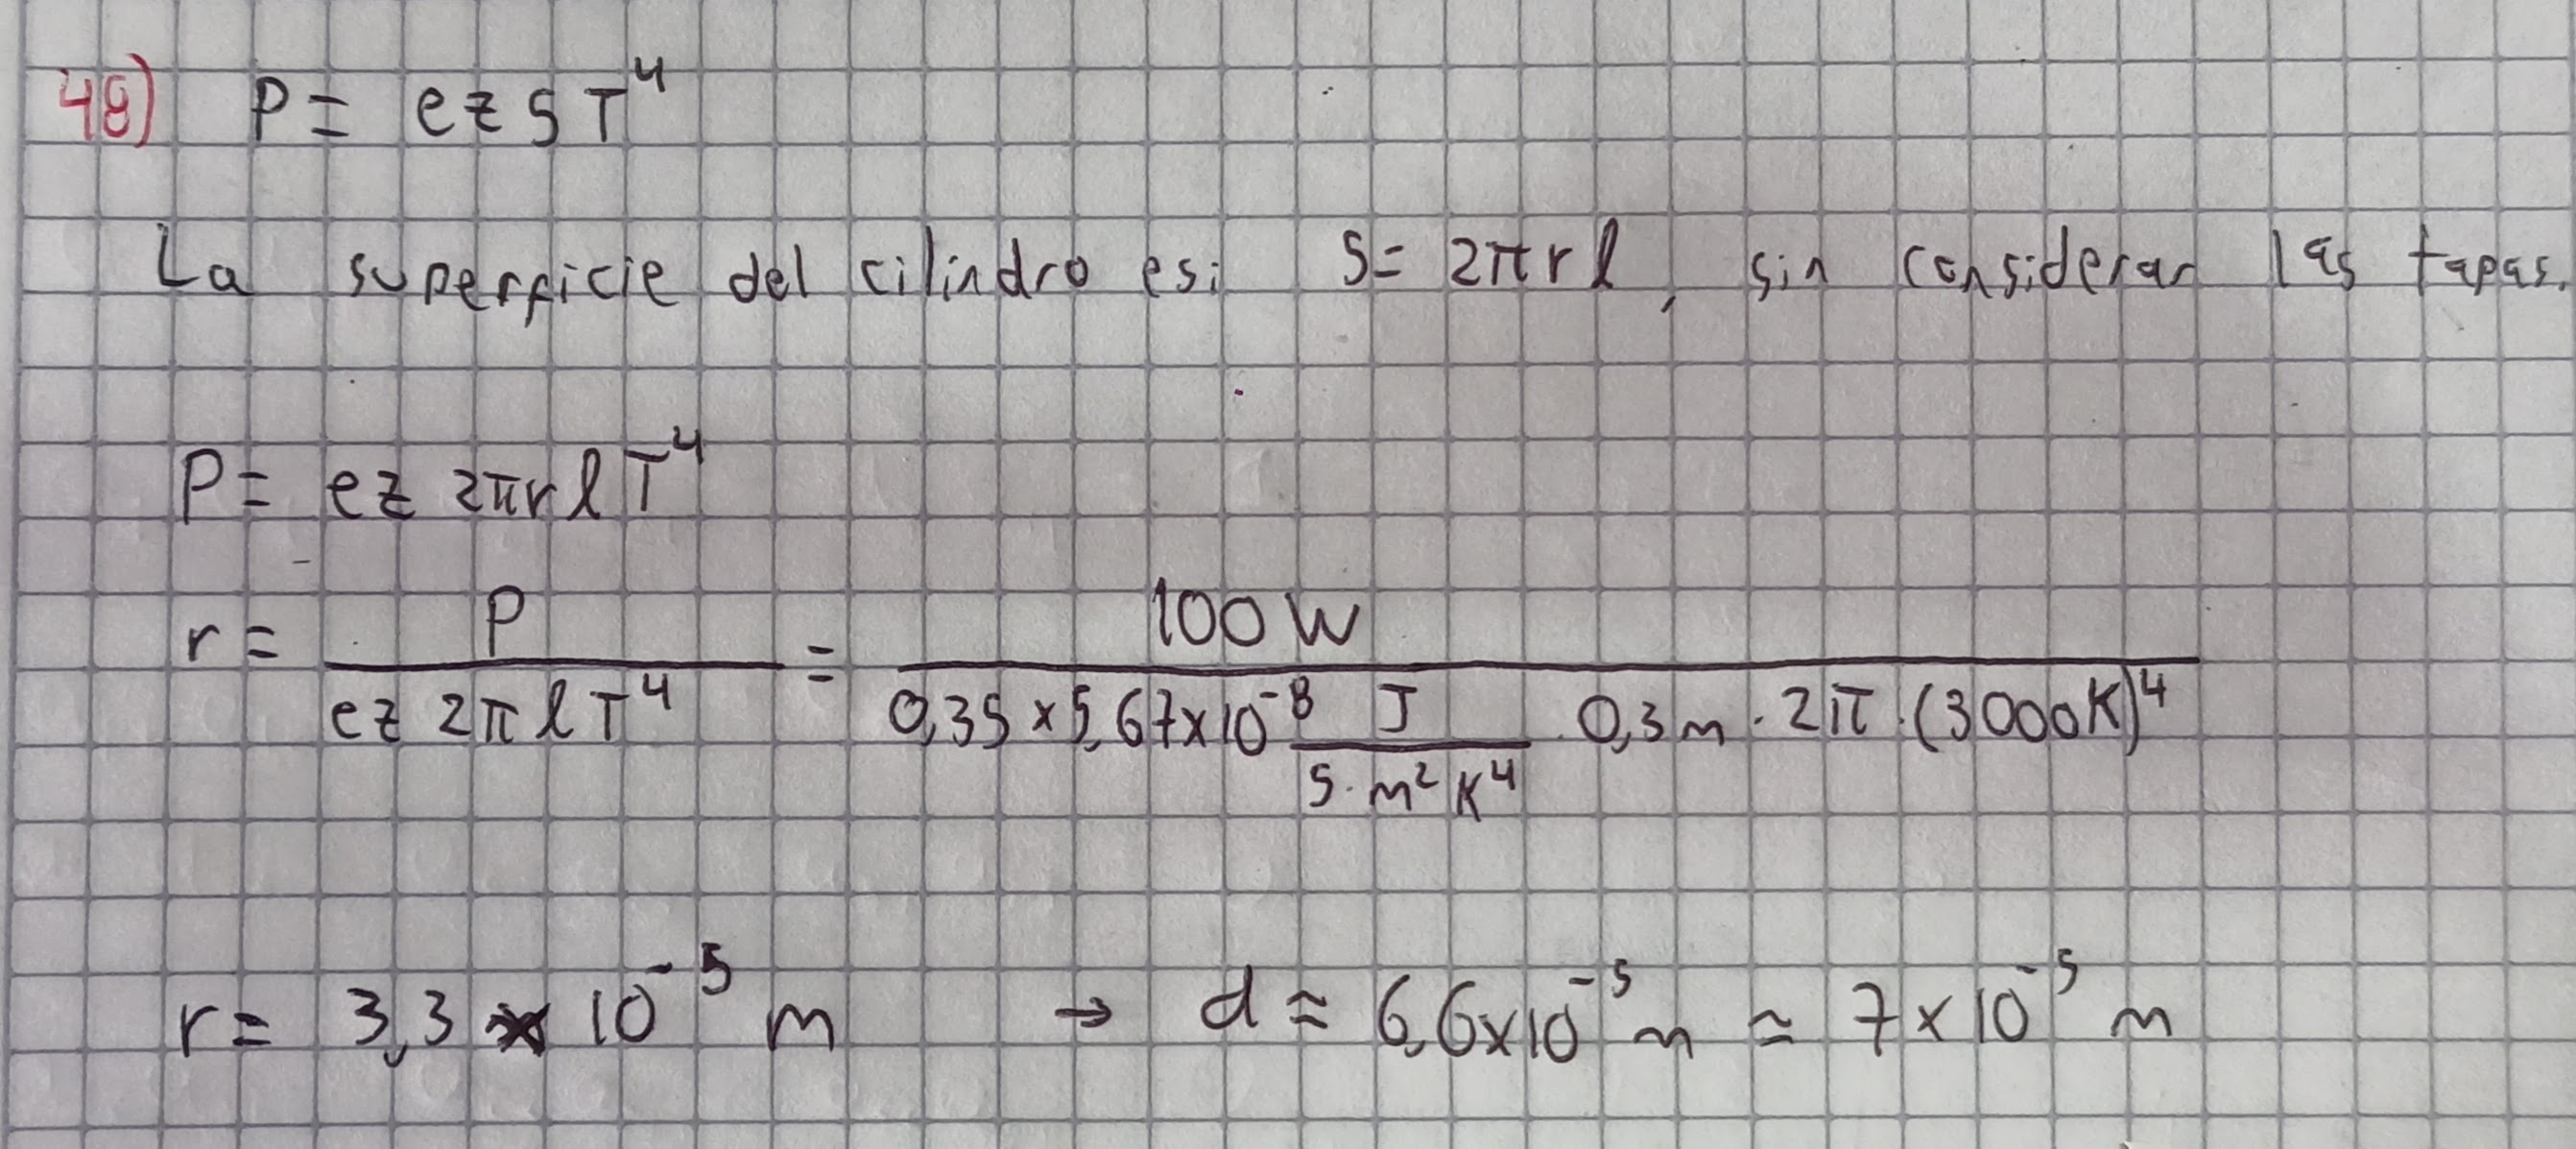 48) P = e z S T⁴
La superficie del cilindro es: S = 2πrl, sin considerar las tapas.
P = e z 2πrl T⁴
r = P / (e z 2π l T⁴) = 100 W / (0,35 x 5,67x10⁻⁸ J / (s·m² K⁴) · 0,3 m · 2π · (3000K)⁴)
r = 3,3 x 10⁻⁵ m → d ≈ 6,6x10⁻⁵ m ≃ 7x10⁻⁵ m